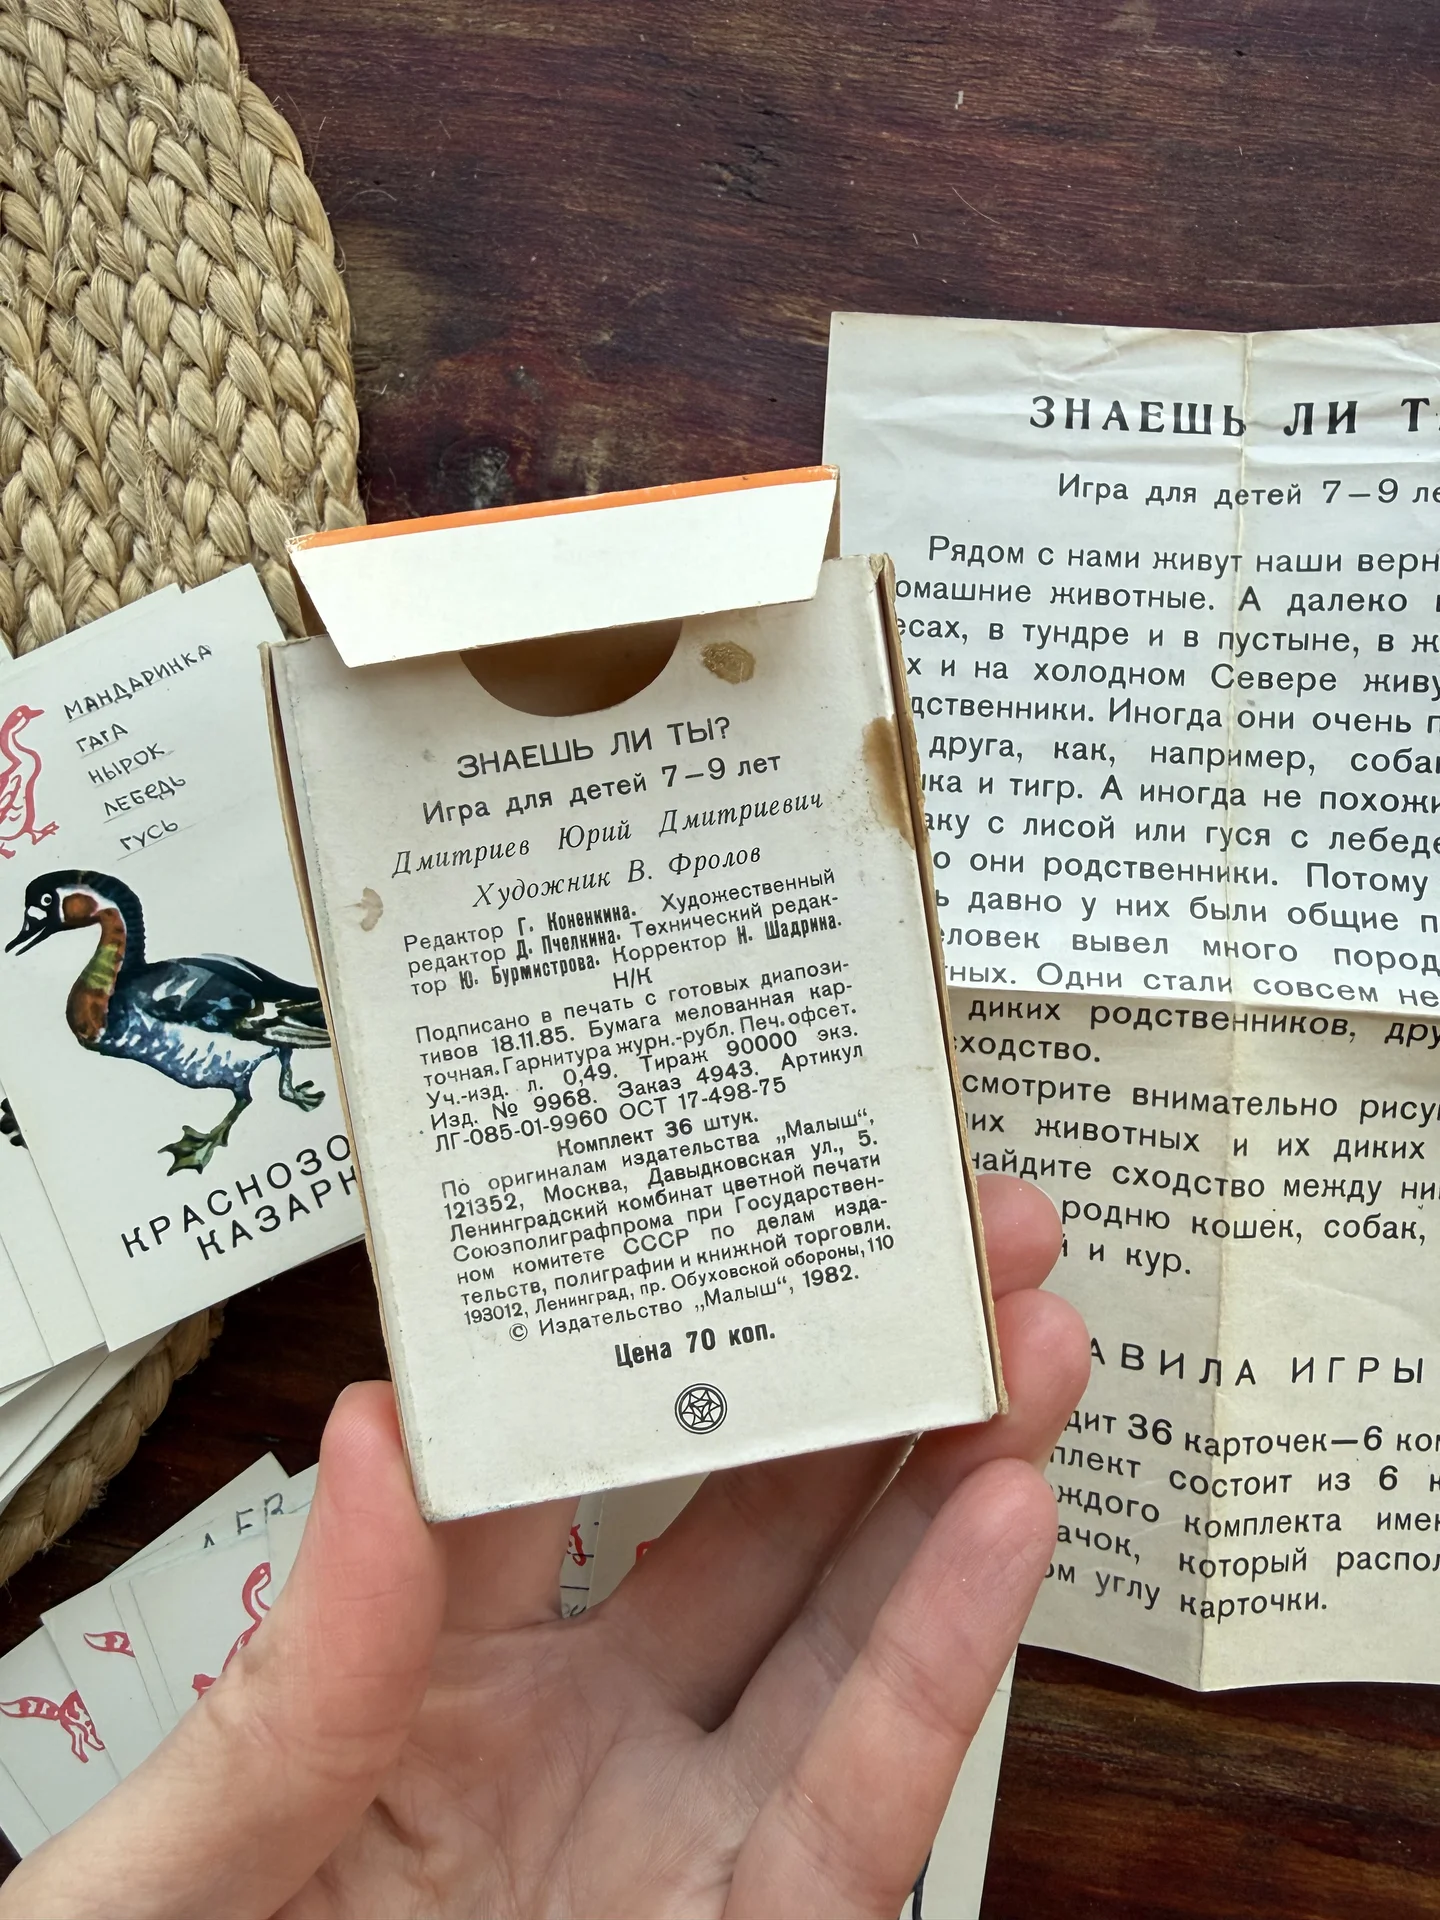 МАНДАРИНКА
ГАГА
НЫРОК
ЛЕБЕДЬ
ГУСЬ
КРАСНОЗО
КАЗАРК
ЗНАЕШЬ ЛИ ТЫ?
Игра для детей 7—9 лет
Дмитриев Юрий Дмитриевич
Художник В. Фролов
Редактор Г. Коненкина. Художественный
редактор Д. Пчелкина. Технический редак-
тор Ю. Бурмистрова. Корректор Н. Шадрина.
Н/К
Подписано в печать с готовых диапози-
тивов 18.11.85. Бумага мелованная кар-
точная. Гарнитура журн.-рубл. Печ. офсет.
Уч.-изд. л. 0,49. Тираж 90000 экз.
Изд. № 9968. Заказ 4943. Артикул
ЛГ-085-01-9960 ОСТ 17-498-75
Комплект 36 штук.
По оригиналам издательства „Малыш“,
121352, Москва, Давыдковская ул., 5.
Ленинградский комбинат цветной печати
Союзполиграфпрома при Государствен-
ном комитете СССР по делам изда-
тельств, полиграфии и книжной торговли.
193012, Ленинград, пр. Обуховской обороны, 110
© Издательство „Малыш“, 1982.
Цена 70 коп.
ЗНАЕШЬ ЛИ Т
Игра для детей 7—9 ле
Рядом с нами живут наши верн
омашние животные. А далеко
есах, в тундре и в пустыне, в ж
х и на холодном Севере живу
дственники. Иногда они очень п
друга, как, например, соба
ка и тигр. А иногда не похожи
аку с лисой или гуся с лебеде
о они родственники. Потому
ь давно у них были общие п
еловек вывел много пород
тных. Одни стали совсем не
диких родственников, дру
сходство.
смотрите внимательно рису
их животных и их диких
найдите сходство между ни
родню кошек, собак,
й и кур.
АВИЛА ИГРЫ
дит 36 карточек—6 ком
плект состоит из 6 к
аждого комплекта име
ачок, который распол
ом углу карточки.